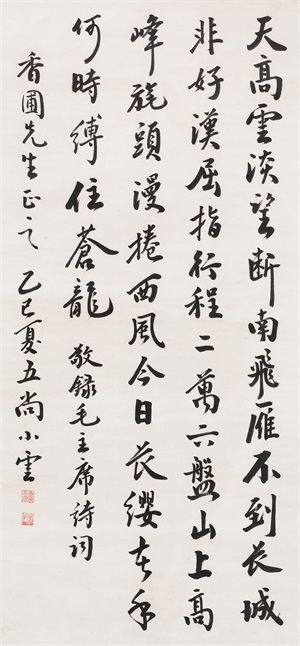 天高雲淡望断南飛雁不到長城
非好漢屈指行程二萬六盤山上高
峰旄頭漫捲西風今日長纓在手
何時縛住蒼龍 敬録毛主席詩詞
香圃先生正之 乙巳夏五尚小雲